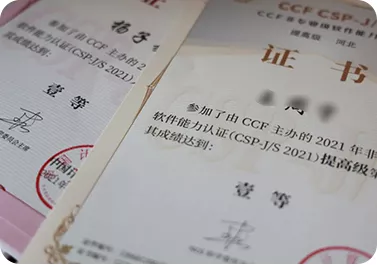 证
杨子
参加了由 CCF 主办的 2021
软件能力认证(CSP-J/S 2021)
其成绩达到：
壹 等
CCF CSP-J/
CCF 非专业级软件能力
提高级 河北
证 书
周
参加了由 CCF 主办的 2021 年非
软件能力认证(CSP-J/S 2021)提高级第
其成绩达到：
壹 等